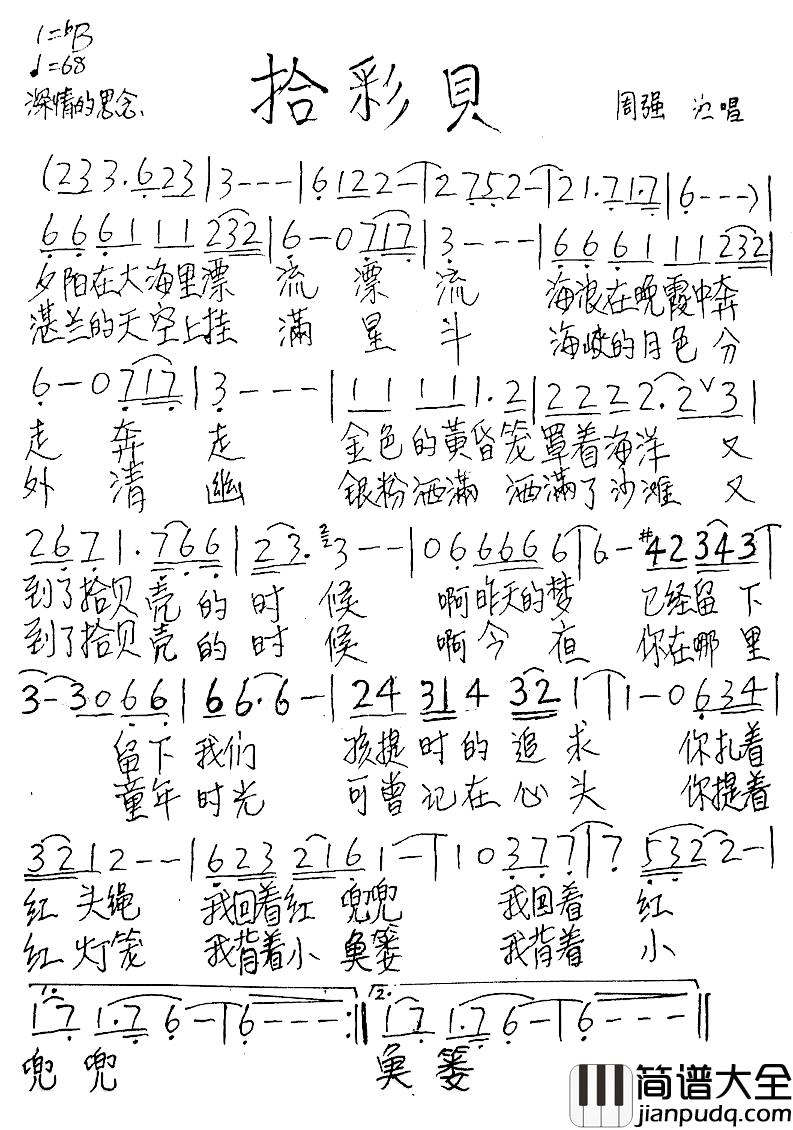 1=♭B
♩=68
深情的思念、
拾彩貝
周强 演唱
(233.623|3---|6122-|2752-|21.71.7|6---)|
666111232|6-0717|3---|666111232|
夕阳在大海里漂 流 漂 流 海浪在晚霞中奔
湛兰的天空上挂 满 星 斗 海峡的月色分
6-0717|3---|11111.2|2222.2ˇ3|
走 奔 走 金色的黄昏笼罩着海洋 又
外 清 幽 银粉洒满 洒满了沙滩 又
2671.766|23.3--|066666|6-#42343|
到了拾贝壳的时候 啊昨天的梦 已经留下
到了拾贝壳的时候 啊今夜 你在哪里
3-3066|66.6-|24314321|1-0634|
留下我们 孩提时的追求 你扎着
童年时光 可曾记在心头 你提着
3212--|6232161-|10377|75322-|
红头绳 我回着红兜兜 我回着 红
红灯笼 我背着小鱼篓 我背着 小
1. 2.
171.76-|6---:||171.76-|6---||
兜兜 鱼篓
简谱大全
jianpudq.com